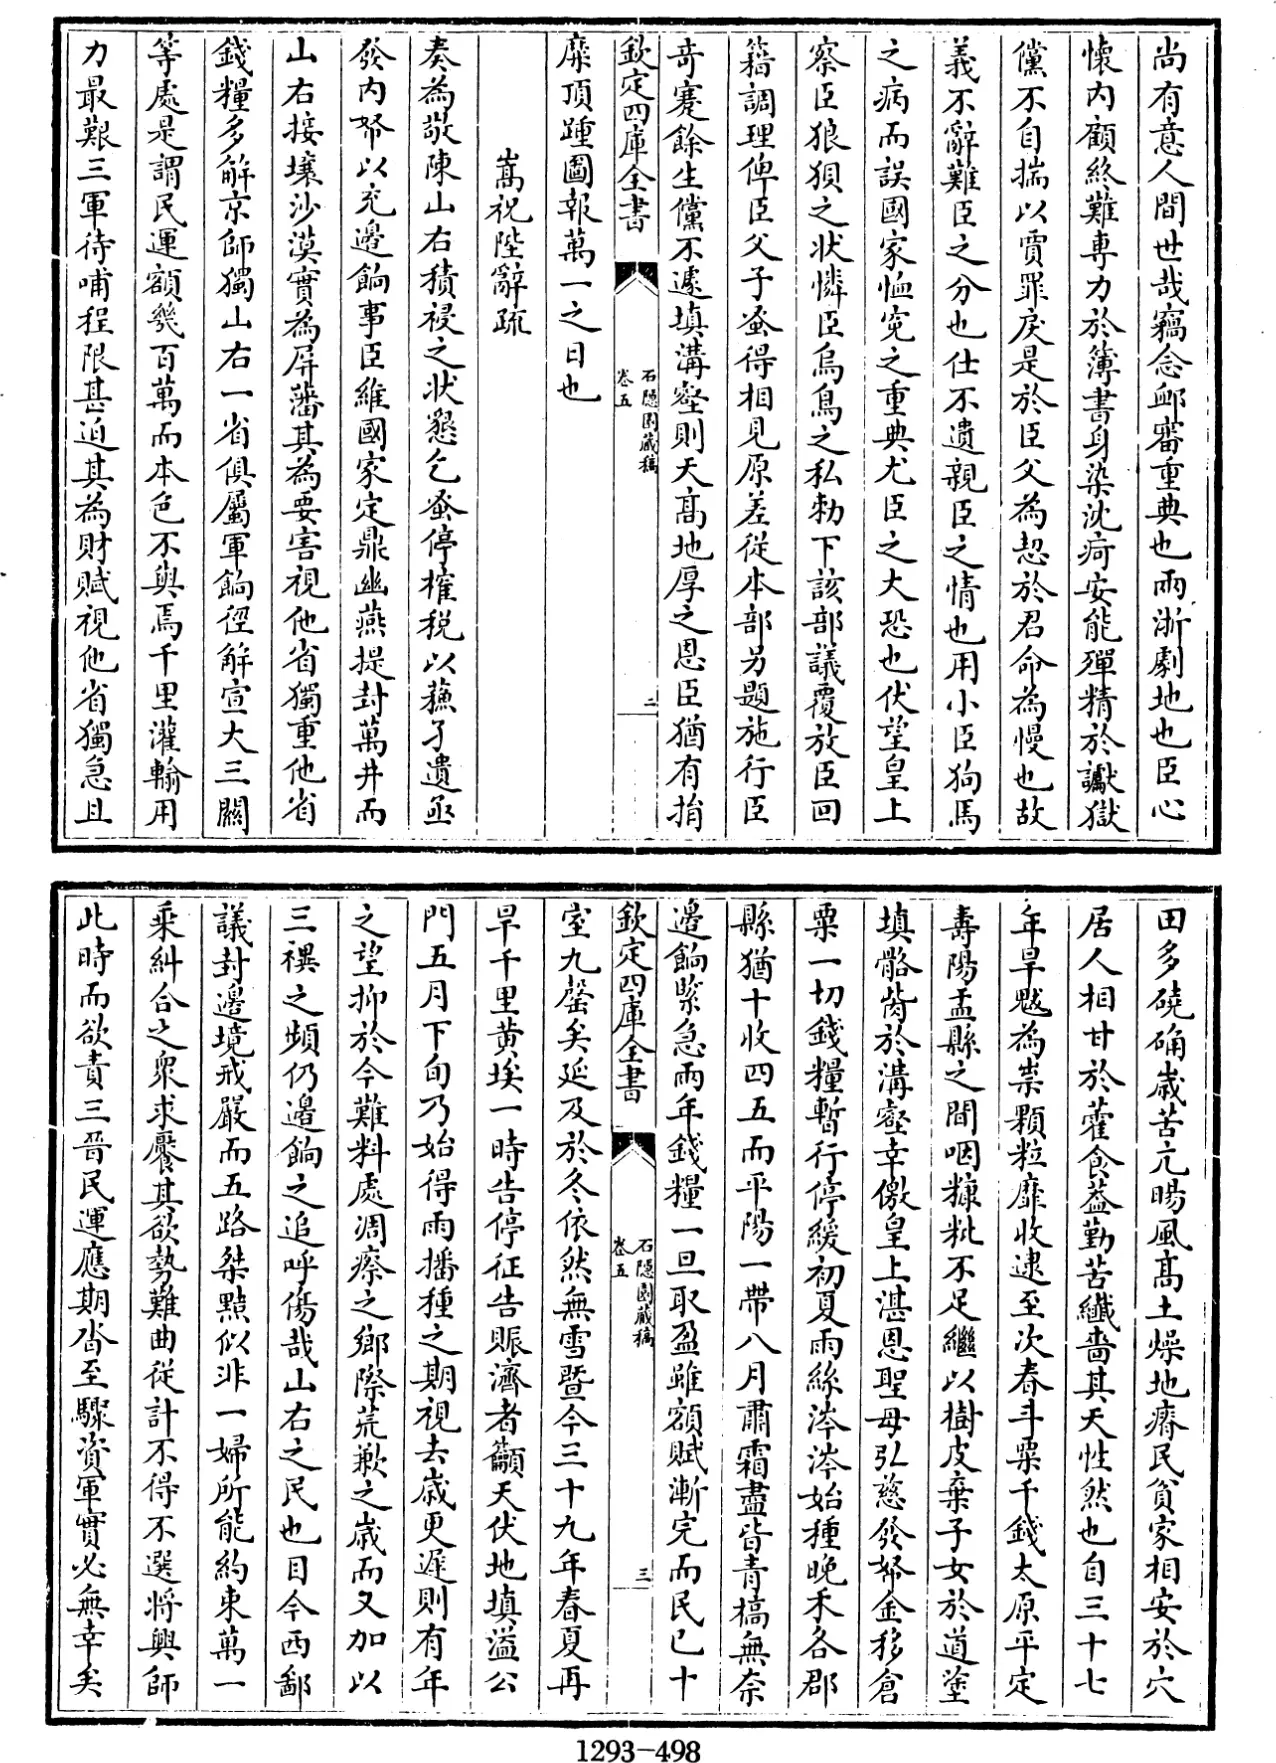 尚有意人間世哉竊念邮審重典也兩浙劇地也臣心
懐内顧終難専力於簿書身染沈疴安能殫精於讞獄
儻不自揣以賈罪戾是於臣父為恝於君命為慢也故
義不辭難臣之分也仕不遺親臣之情也用小臣狗馬
之病而誤國家恤寃之重典尤臣之大恐也伏望皇上
察臣狼狽之状憐臣烏鳥之私勅下該部議覆放臣回
籍調理俾臣父子蚤得相見原差從本部另題施行臣
竒蹇餘生儻不遽填溝壑則天髙地厚之恩臣猶有捐
欽定四庫全書
石隠園藏稿
卷五
二
糜頂踵圖報萬一之日也
嵩祝陛辭疏
奏為敬陳山右積祲之状懇乞蚤停榷税以蘓孑遺亟
發内帑以充邊餉事臣維國家定鼎幽燕提封萬井而
山右接壤沙漠實為屏藩其為要害視他省獨重他省
錢糧多解京師獨山右一省俱屬軍餉徑解宣大三關
等處是謂民運額幾百萬而本色不與焉千里灌輸用
力最艱三軍待哺程限甚迫其為財賦視他省獨急且
田多磽确嵗苦亢暘風髙土燥地瘠民貧家相安於穴
居人相甘於藿食葢勤苦纎嗇其天性然也自三十七
年旱魃為祟顆粒靡收逮至次春斗粟千錢太原平定
壽陽盂縣之間咽糠粃不足繼以樹皮棄子女於道塗
填骼胔於溝壑幸儌皇上湛恩聖母弘慈發帑金移倉
粟一切錢糧暫行停緩初夏雨絲涔涔始種晚禾各郡
縣猶十收四五而平陽一帶八月肅霜盡皆青槁無奈
邊餉緊急兩年錢糧一旦取盈雖額賦漸完而民已十
欽定四庫全書
石隠園藏稿
卷五
三
室九罄矣延及於冬依然無雪暨今三十九年春夏再
旱千里黄埃一時告停征告賑濟者籲天伏地填溢公
門五月下旬乃始得雨播種之期視去嵗更遲則有年
之望抑於今難料處凋瘵之鄉際荒歉之嵗而又加以
三禩之頻仍邊餉之追呼傷哉山右之民也目今西鄙
議封邊境戒嚴而五路桀黠似非一婦所能約束萬一
乘糾合之衆求饜其欲勢難曲從計不得不選將興師
此時而欲責三晉民運應期沓至驟資軍實必無幸矣
1293-498